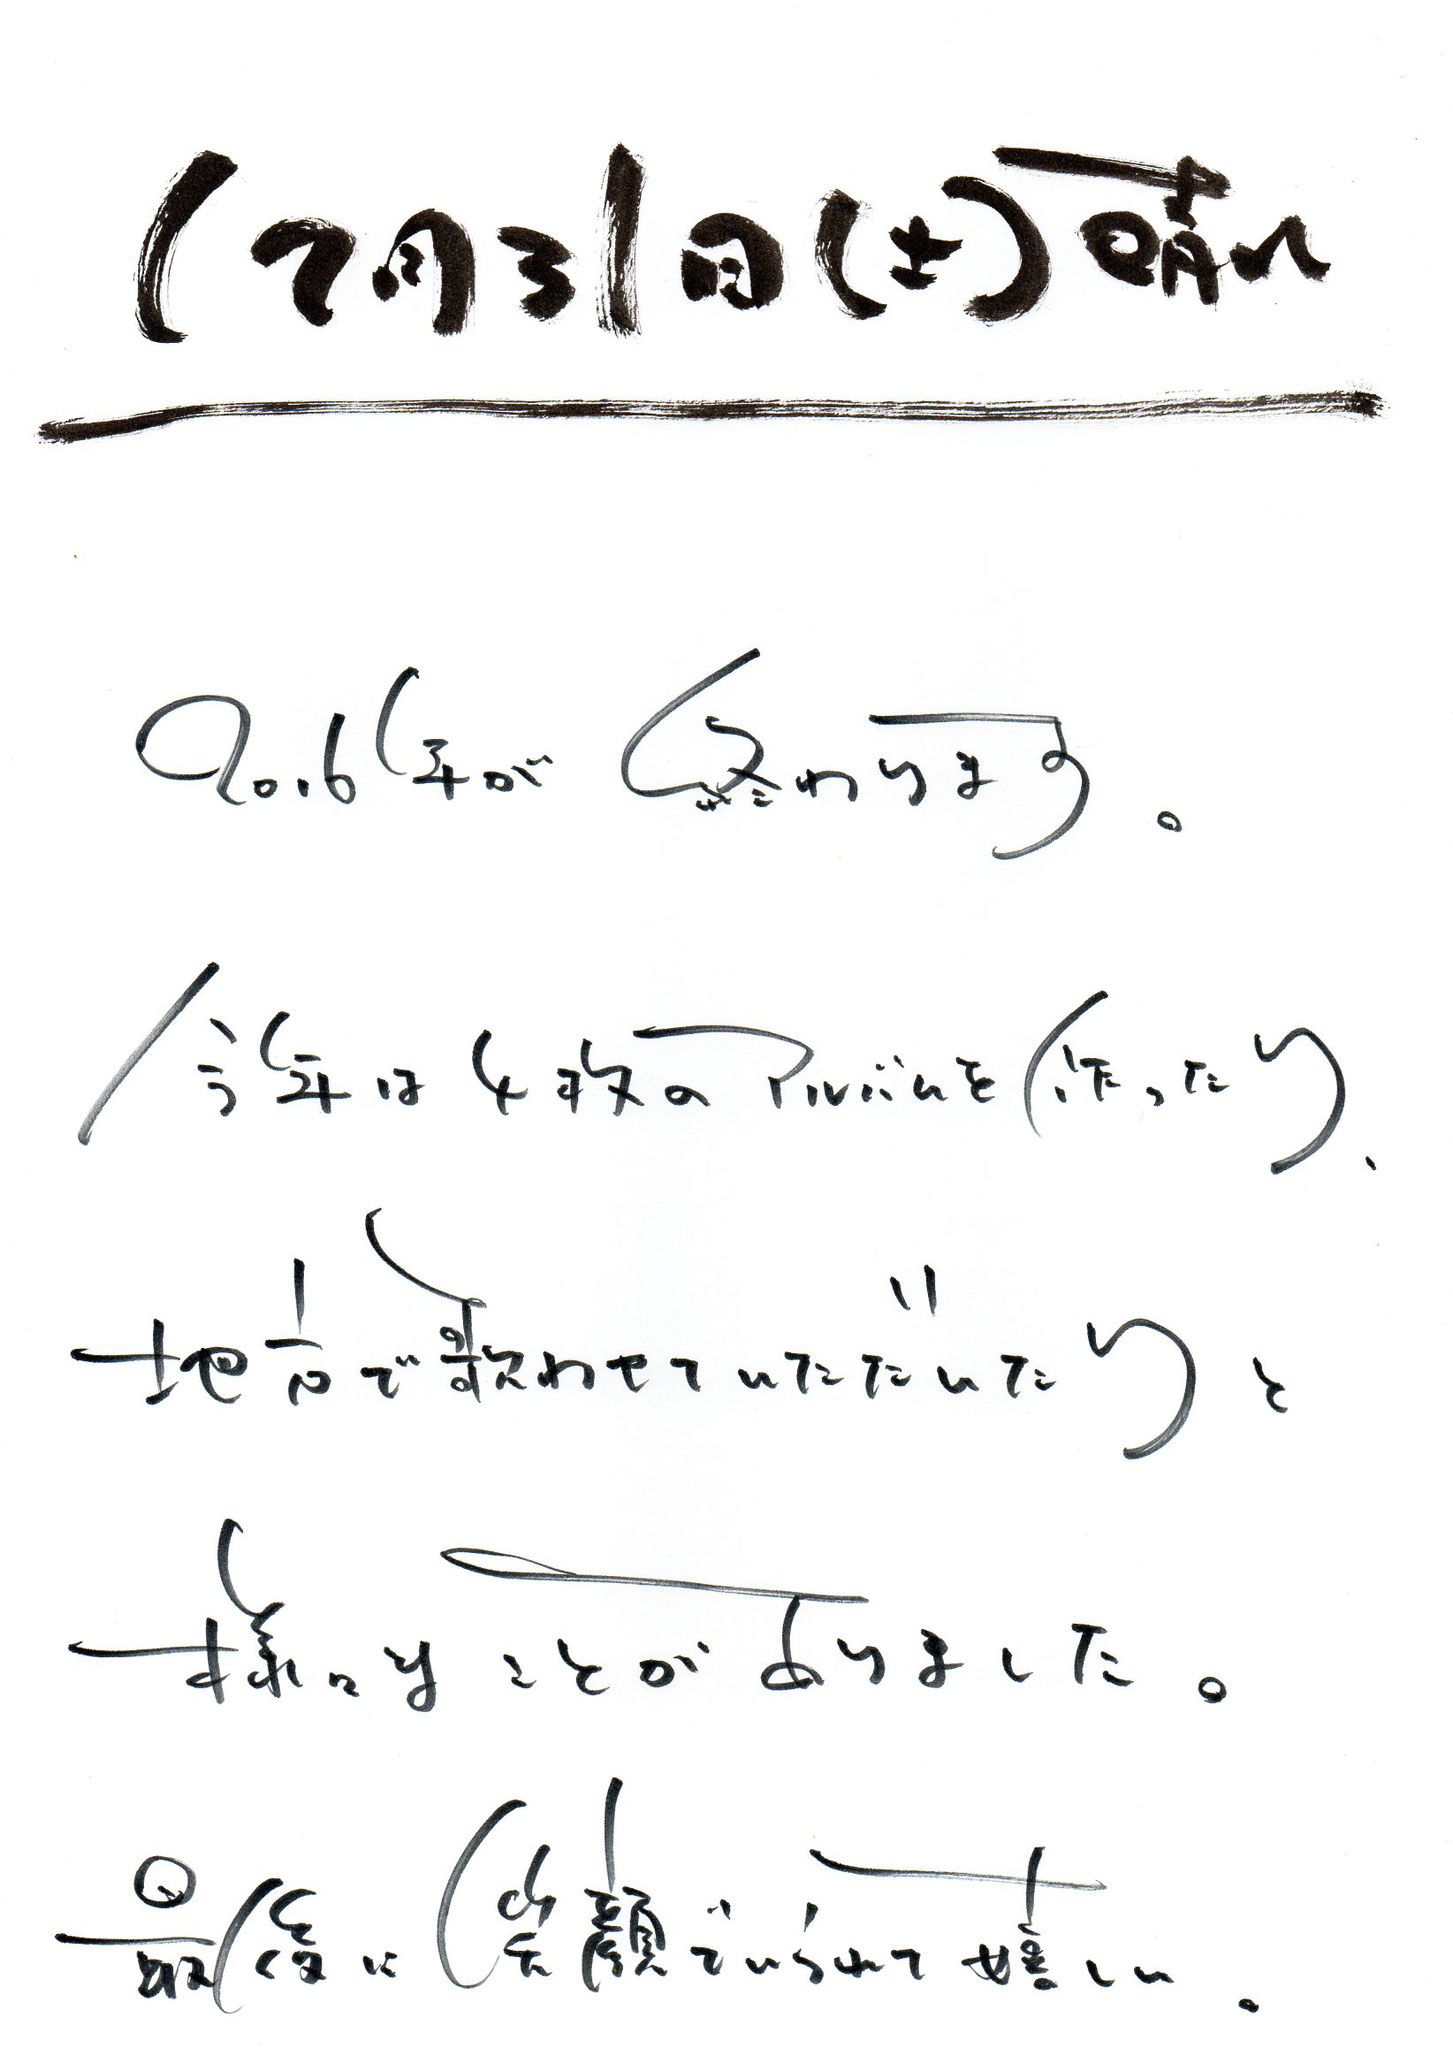 12月31日(土)晴れ
2016年が終わります。
今年は4枚のアルバムを作ったり、
地方で歌わせていただいたりと
様々なことがありました。
最後に笑顔でいられて嬉しい。